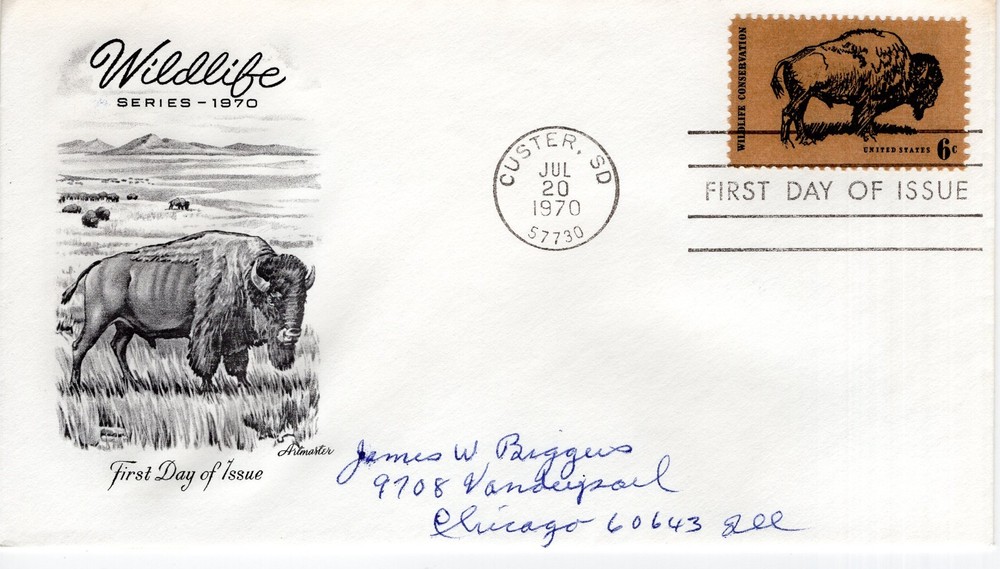 Wildlife
SERIES - 1970
WILDLIFE CONSERVATION
UNITED STATES 6c
CUSTER, SD
JUL
20
1970
57730
FIRST DAY OF ISSUE
Artmaster
First Day of Issue
James W Biggus
9708
Chicago 60643 Ill